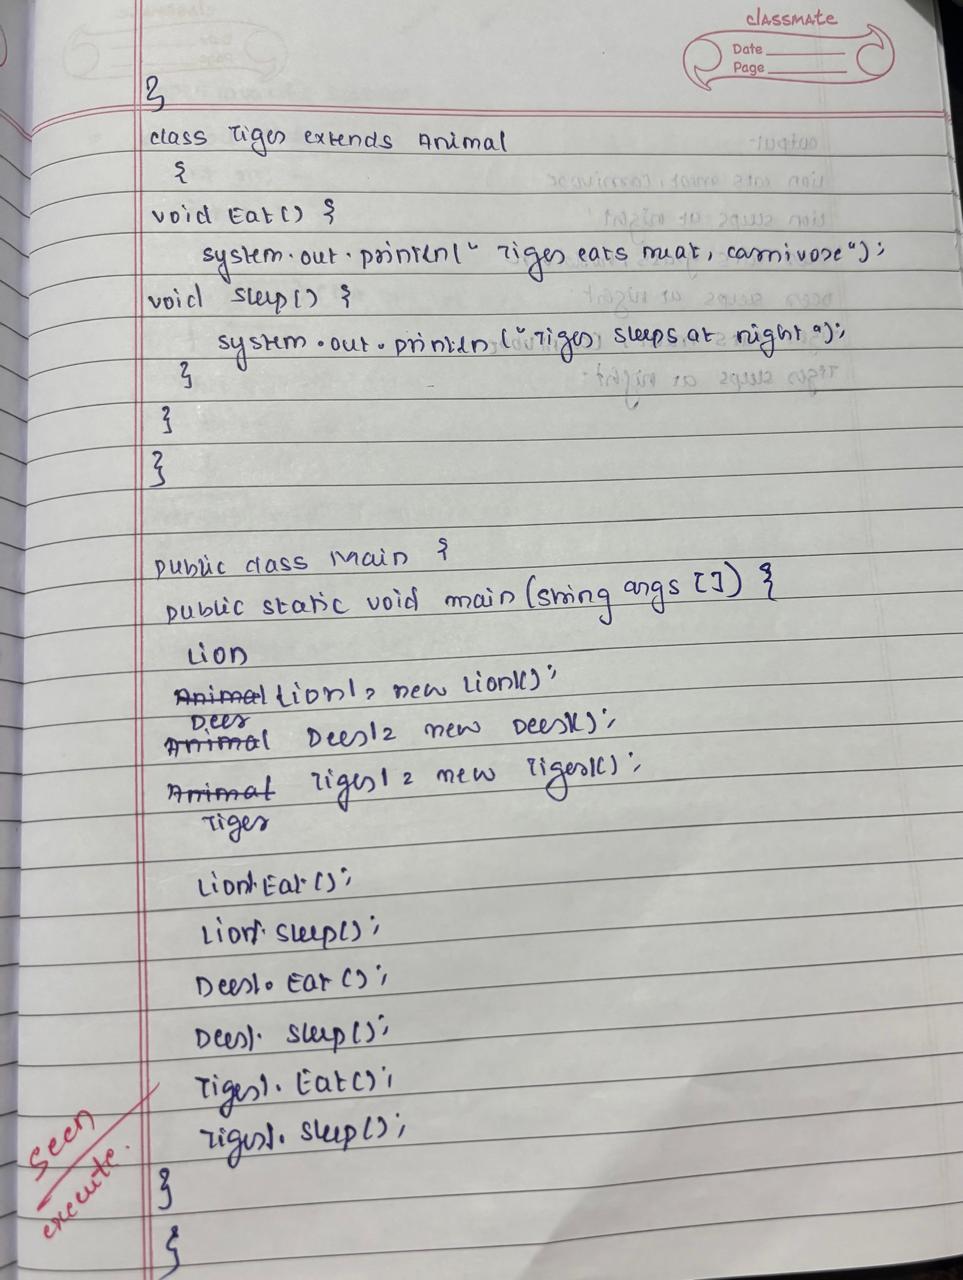 classmate
Date
Page
}
class Tiger extends Animal
{
void Eat() {
system.out.println(" Tiger eats meat, carnivore");
void sleep() {
system.out.println("Tiger sleeps at night");
}
}
}
public class Main {
public static void main(string args []) {
Lion
Animal Lion1 = new Lion1();
Deer
Animal Deer1 = new Deer1();
Animal Tiger1 = new Tiger1();
Tiger
Lion1.Eat();
Lion1.sleep();
Deer1.Eat();
Deer1.sleep();
Tiger1.Eat();
Tiger1.sleep();
}
{
Seen
execute.